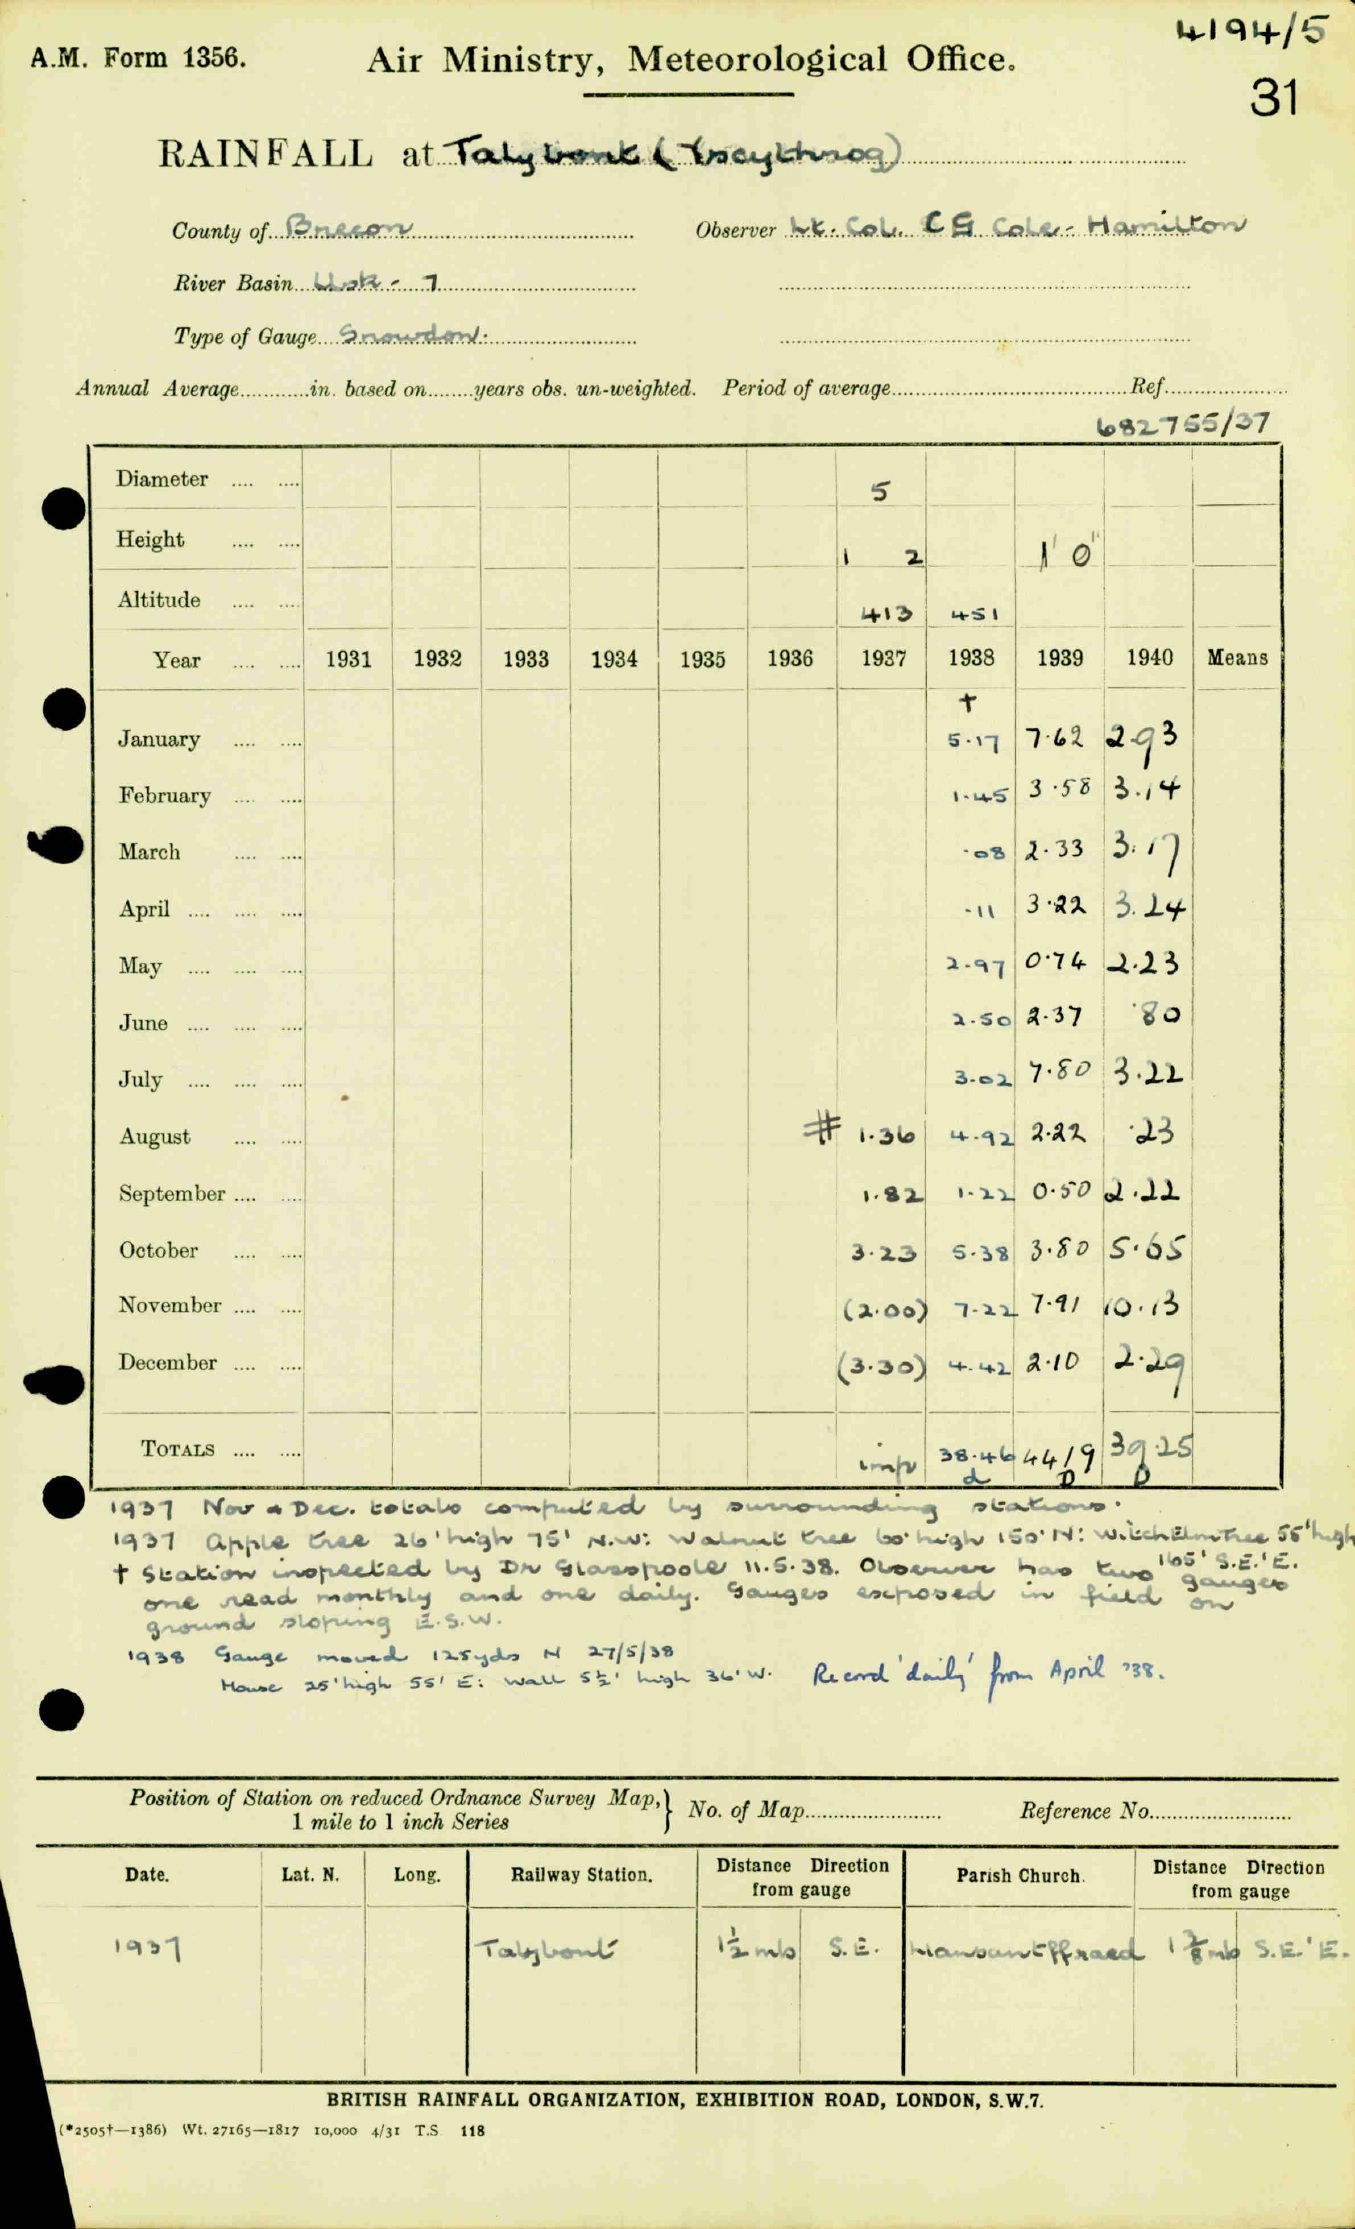 4194/5
A.M. Form 1356. Air Ministry, Meteorological Office.
31
RAINFALL at Talybont (Yscythrog)
County of Brecon Observer Lt. Col. C G Cole-Hamilton
River Basin Usk - 7
Type of Gauge Snowdon.
Annual Average in. based on years obs. un-weighted. Period of average Ref.
682755/37
Diameter 5
Height 1 2 1' 0"
Altitude 413 451
Year 1931 1932 1933 1934 1935 1936 1937 1938 1939 1940 Means
†
January 5.17 7.62 2.93
February 1.45 3.58 3.14
March .08 2.33 3.17
April .11 3.22 3.24
May 2.97 0.74 2.23
June 2.50 2.37 .80
July 3.02 7.80 3.22
August # 1.36 4.92 2.22 .23
September 1.82 1.22 0.50 2.22
October 3.23 5.38 3.80 5.65
November (2.00) 7.22 7.91 10.13
December (3.30) 4.42 2.10 2.29
TOTALS imp 38.46 44.19 39.25
d D D
1937 Nov & Dec. totals computed by surrounding stations.
1937 Apple tree 26' high 75' N.W: Walnut tree 60' high 150' N: Witch Elm Tree 55' high
165' S.E.'E.
† Station inspected by Dr Glasspoole 11.5.38. Observer has two gauges
one read monthly and one daily. Gauges exposed in field on
ground sloping E.S.W.
1938 Gauge moved 125yds N 27/5/38
House 25' high 55' E: Wall 5½' high 36' W. Record 'daily' from April '38.
Position of Station on reduced Ordnance Survey Map, } No. of Map Reference No.
1 mile to 1 inch Series
Date. Lat. N. Long. Railway Station. Distance Direction from gauge Parish Church. Distance Direction from gauge
1937 Talybont 1½ mls S.E. Llansantffraed 1⅞ mls S.E.'E.
BRITISH RAINFALL ORGANIZATION, EXHIBITION ROAD, LONDON, S.W.7.
(*2505†—1386) Wt. 27165—1817 10,000 4/31 T.S. 118